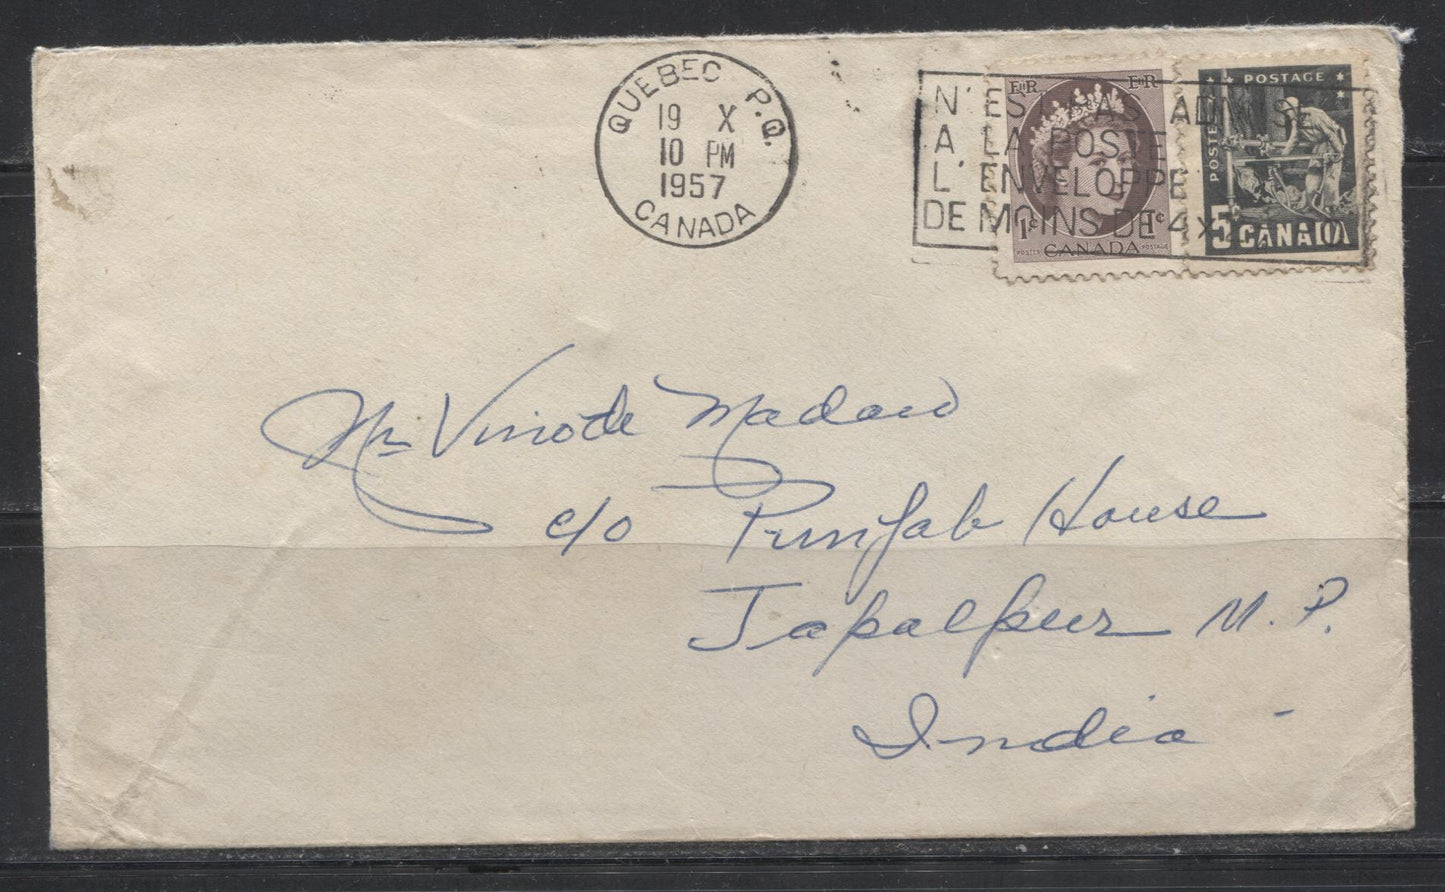 QUEBEC P.Q.
19 X
10 PM
1957
CANADA
N'EST PAS ADMISE
A LA POSTE
L'ENVELOPPE
DE MOINS DE 4x
EIIR EIIR
1¢ 1¢
POSTES CANADA POSTAGE
POSTAGE
POSTES
5¢ CANADA
Mr Vinode Madan
c/o Punjab House
Japalpur M. P.
India -